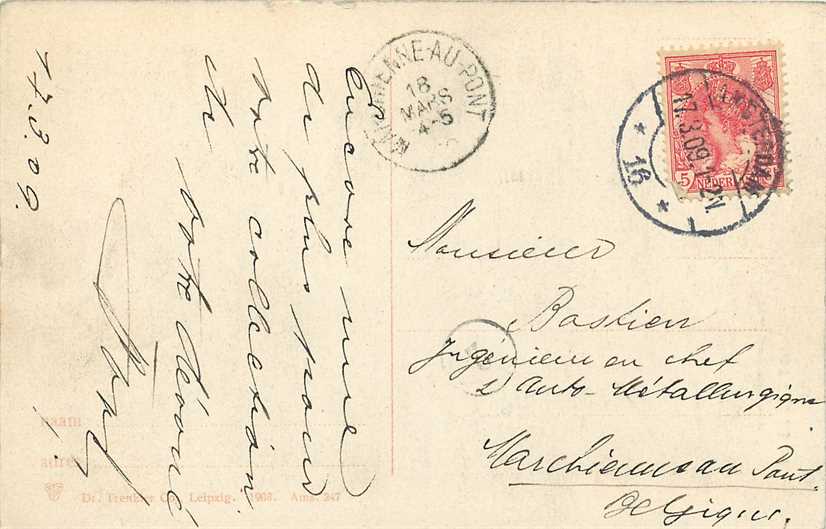 17.3.09.
Encore une
de plus pour
votre collection
de
votre dévoué
MARCHIENNE-AU-PONT
18
MARS
4-5
AMSTERDAM
17.3.09.1-2N
16
5
NEDERLAND
Monsieur
Bastien
Ingénieur en chef
d'Auto-Métallurgique
Marchienne au Pont.
Belgique.
naam
adres
Dr. Trenkler Co., Leipzig. 1908. Ams. 247